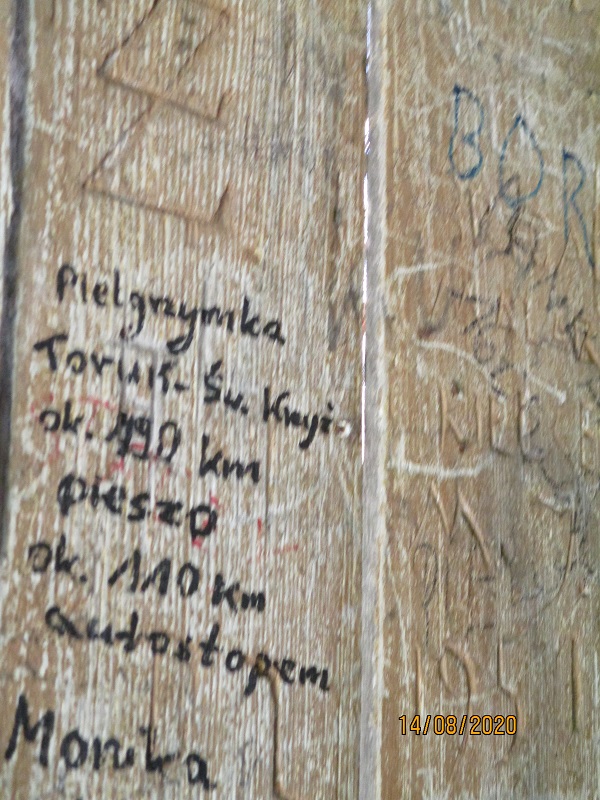 Pielgrzymka
Toruń - Św. Krzyż
ok. 190 km
pieszo
ok. 110 km
autostopem
Monika
BOR
14/08/2020